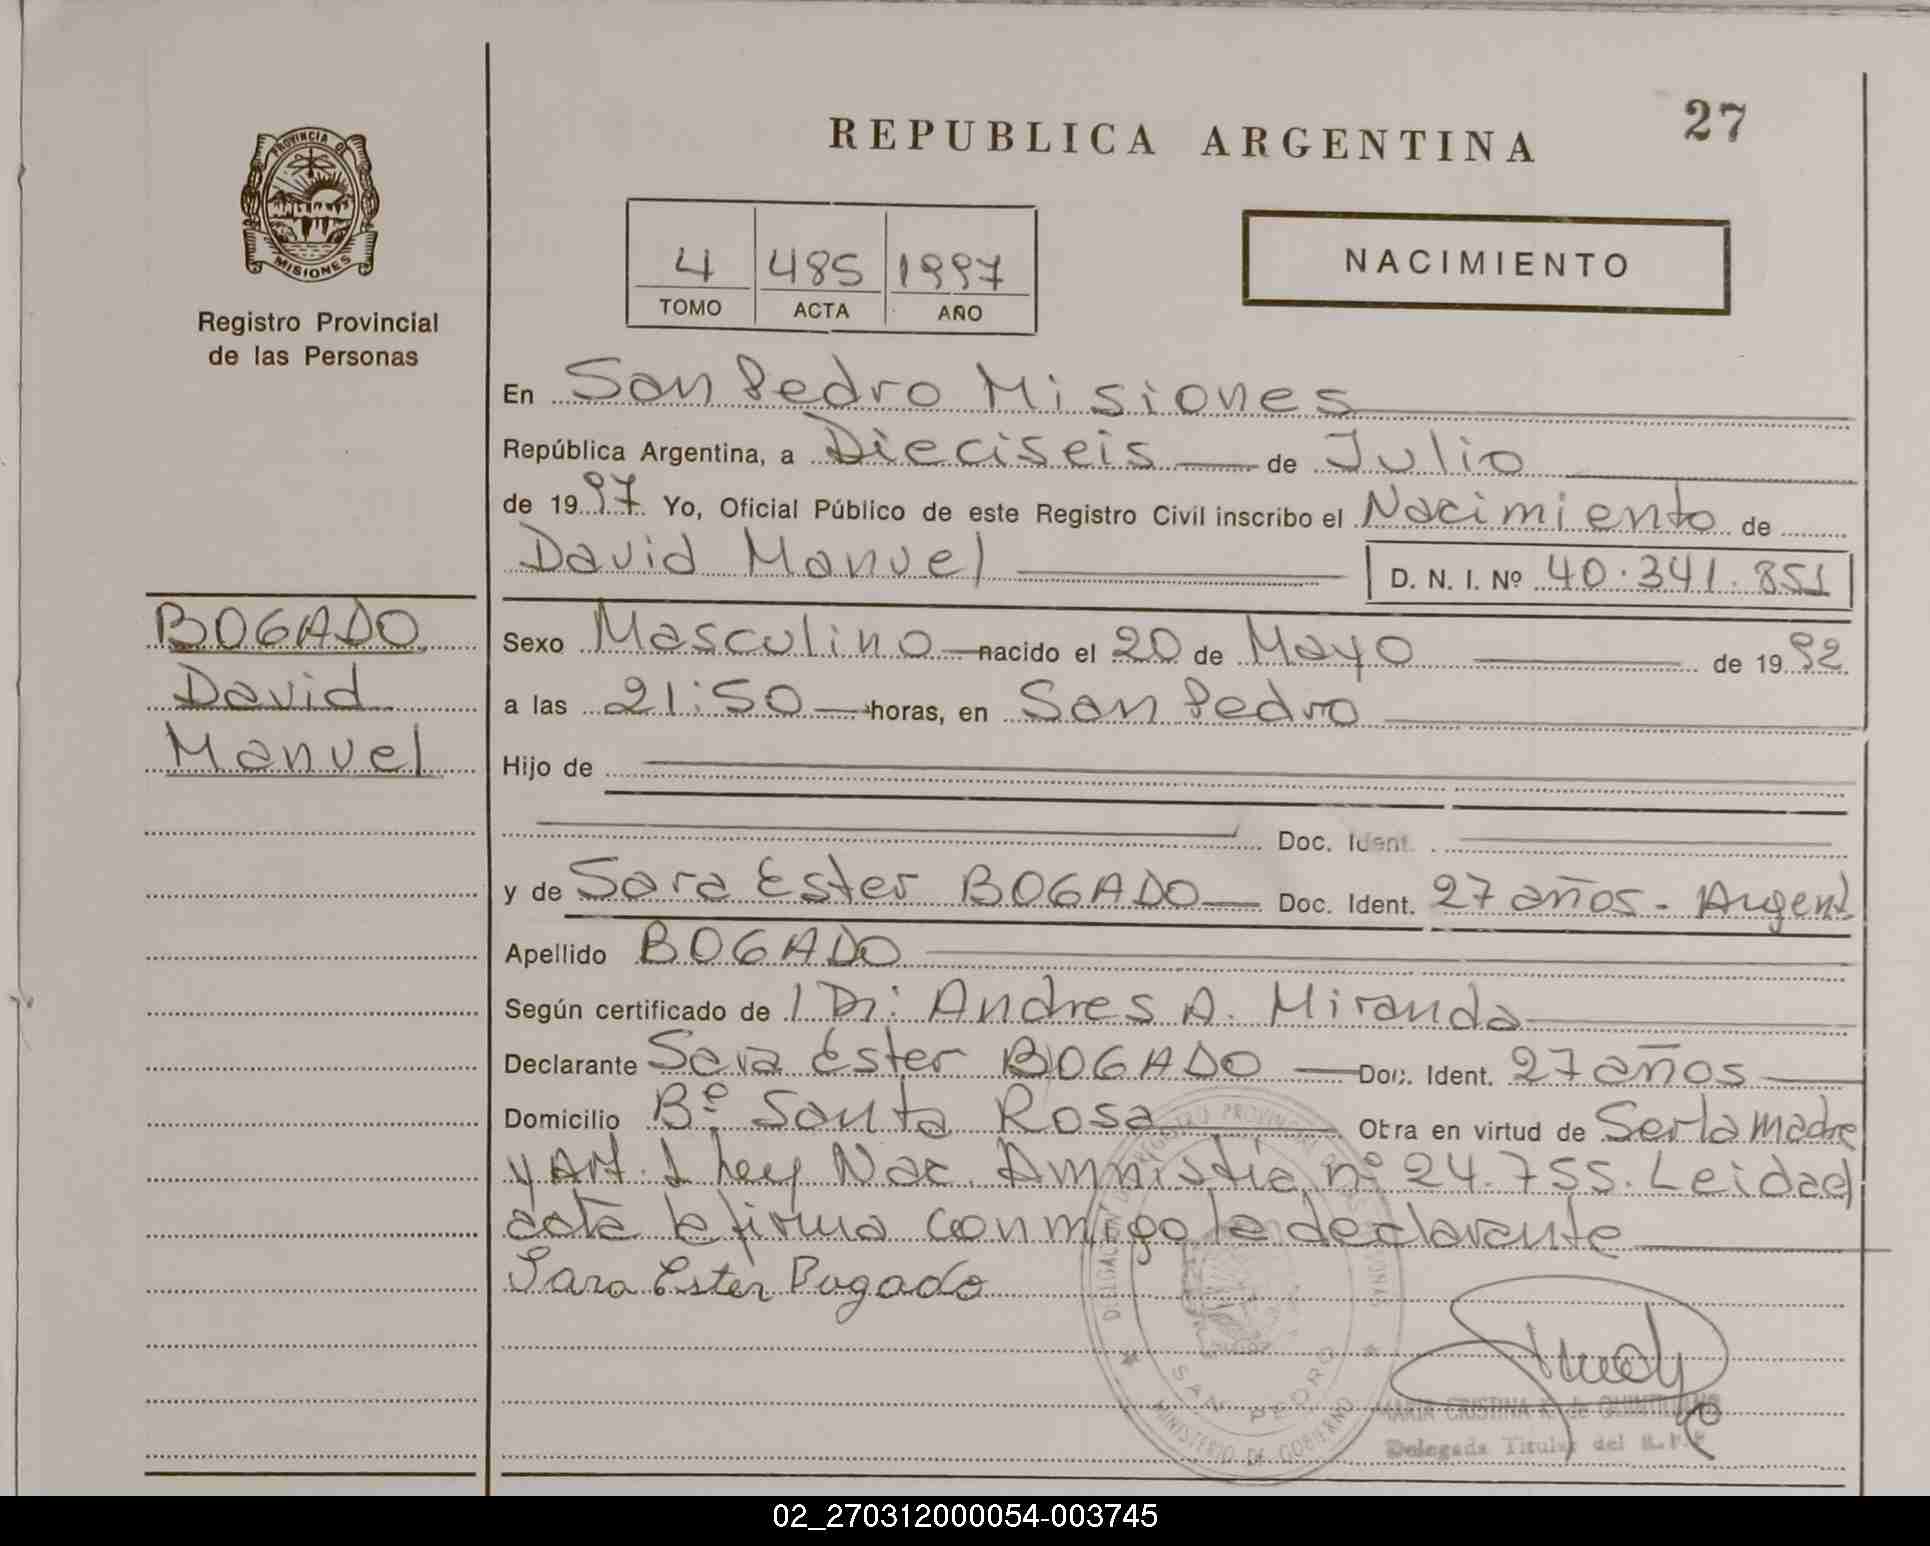 27
REPUBLICA ARGENTINA
PROVINCIA DE
MISIONES
Registro Provincial
de las Personas
4 485 1997
TOMO ACTA AÑO
NACIMIENTO
En San Pedro Misiones
República Argentina, a Dieciseis de Julio
de 1997 Yo, Oficial Público de este Registro Civil inscribo el Nacimiento de
David Manuel D. N. I. Nº 40.341.851
BOGADO
David
Manuel
Sexo Masculino nacido el 20 de Mayo de 1992
a las 21:50 horas, en San Pedro
Hijo de
Doc. Ident.
y de Sara Ester BOGADO Doc. Ident. 27 años - Argent.
Apellido BOGADO
Según certificado de 1 Dr: Andres A. Miranda
Declarante Sara Ester BOGADO Doc. Ident. 27 años
Domicilio Bº Santa Rosa Obra en virtud de Ser la madre
y Art. 1 Ley Nac. Amnistia nº 24.755. Leida el
acta la firma conmigo la declarante
Sara Ester Bogado
SAN PEDRO
MINISTERIO DE GOBIERNO
MARIA CRISTINA K. de
Delegada Titular del R.P.P.
02_270312000054-003745